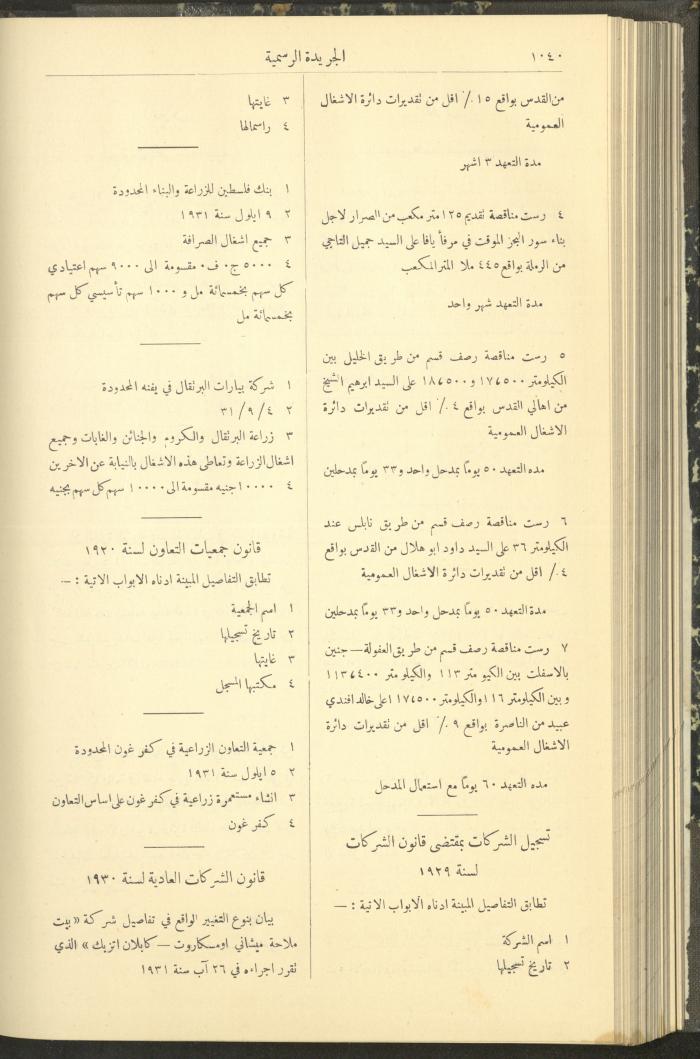 ١٠٤٠
الجريدة الرسمية
من القدس بواقع ١٥ ٪ اقل من تقديرات دائرة الاشغال
العمومية
مدة التعهد ٣ اشهر
٤ رست مناقصة تقديم ١٢٥ متر مكعب من الصرار لاجل
بناء سور البحر الموقت في مرفأ يافا على السيد جميل التاجي
من الرملة بواقع ٤٤٥ ملا المتر المكعب
مدة التعهد شهر واحد
٥ رست مناقصة رصف قسم من طريق الخليل بين
الكيلومتر ١٧٤٥٠٠ و ١٨٤٥٠٠ على السيد ابرهيم الشيخ
من اهالي القدس بواقع ٤ ٪ اقل من تقديرات دائرة
الاشغال العمومية
مده التعهد ٥٠ يوماً بمدحل واحد و٣٣ يوماً بمدحلين
٦ رست مناقصة رصف قسم من طريق نابلس عند
الكيلومتر ٣٦ على السيد داود ابو هلال من القدس بواقع
٤ ٪ اقل من تقديرات دائرة الاشغال العمومية
مدة التعهد ٥٠ يوماً بمدحل واحد و٣٣ يوماً بمدحلين
٧ رست مناقصة رصف قسم من طريق العفولة — جنين
بالاسفلت بين الكيو متر ١١٣ والكيلو متر ١١٣٤٤٠٠
وبين الكيلومتر ١١٦ والكيلومتر ١١٧٤٥٠٠ على خالد افندي
عبيد من الناصرة بواقع ٩ ٪ اقل من تقديرات دائرة
الاشغال العمومية
مده التعهد ٦٠ يوماً مع استعمال المدحل
تسجيل الشركات بمقتضى قانون الشركات
لسنة ١٩٢٩
تطابق التفاصيل المبينة ادناه الابواب الاتية : —
١ اسم الشركة
٢ تاريخ تسجيلها
٣ غايتها
٤ راسمالها
١ بنك فلسطين للزراعة والبناء المحدودة
٢ ٩ ايلول سنة ١٩٣١
٣ جميع اشغال الصرافة
٤ ٥٠٠٠ ج٠ ف٠ مقسومة الى ٩٠٠٠ سهم اعتيادي
كل سهم بخمسمائة مل و ١٠٠٠ سهم تأسيسي كل سهم
بخمسمائة مل
١ شركة بيارات البرتقال في يفنه المحدودة
٢ ٤ / ٩ / ٣١
٣ زراعة البرتقال والكروم والجنائن والغابات وجميع
اشغال الزراعة وتعاطى هذه الاشغال بالنيابة عن الاخرين
٤ ١٠٠٠٠ جنيه مقسومة الى ١٠٠٠٠ سهم كل سهم بجنيه
قانون جمعيات التعاون لسنة ١٩٢٠
تطابق التفاصيل المبينة ادناه الابواب الاتية : —
١ اسم الجمعية
٢ تاريخ تسجيلها
٣ غايتها
٤ مكتبها المسجل
١ جمعية التعاون الزراعية في كفر غون المحدودة
٢ ٥ ايلول سنة ١٩٣١
٣ انشاء مستعمرة زراعية في كفر غون على اساس التعاون
٤ كفر غون
قانون الشركات العادية لسنة ١٩٣٠
بيان بنوع التغيير الواقع في تفاصيل شركة « بيت
ملاحة ميشاني اومسكاروت — كابلان اتزيك » الذي
تقرر اجراءه في ٢٦ آب سنة ١٩٣١